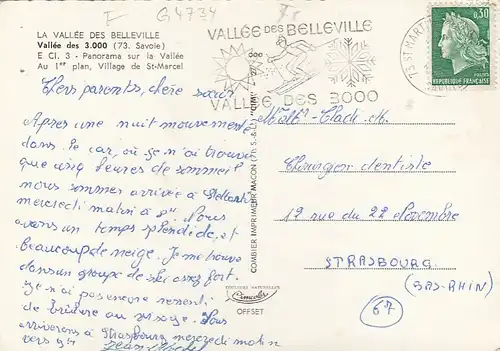 F G4734
LA VALLÉE DES BELLEVILLE
Vallée des 3.000 (73. Savoie)
E Cl. 3 - Panorama sur la Vallée
Au 1er plan, Village de St-Marcel
Chers parents, chère sœur
Après une nuit mouvementée
dans le car, où je n'ai trouvé
que cinq heures de sommeil
nous sommes arrivés à
mercredi matin à 8H. Nous
avons un temps splendide, et
beaucoup de neige. Je me trouve
dans un groupe de ski assez fort.
Je n'ai pas encore ressenti
de brûlure au visage. Nous
arriverons à Strasbourg mercredi matin
vers 9H
COMBIER IMPRIMEUR MACON (71 S.-&-L.) "CIM"
COULEURS NATURELLES
Cimcolor
OFFSET
VALLÉE DES BELLEVILLE
VALLÉE DES 3000
73 ST MARTIN
0,30
REPUBLIQUE FRANÇAISE
POSTES
Chirurgien dentiste
12 rue du 22 Novembre
STRASBOURG
(BAS-RHIN)
67